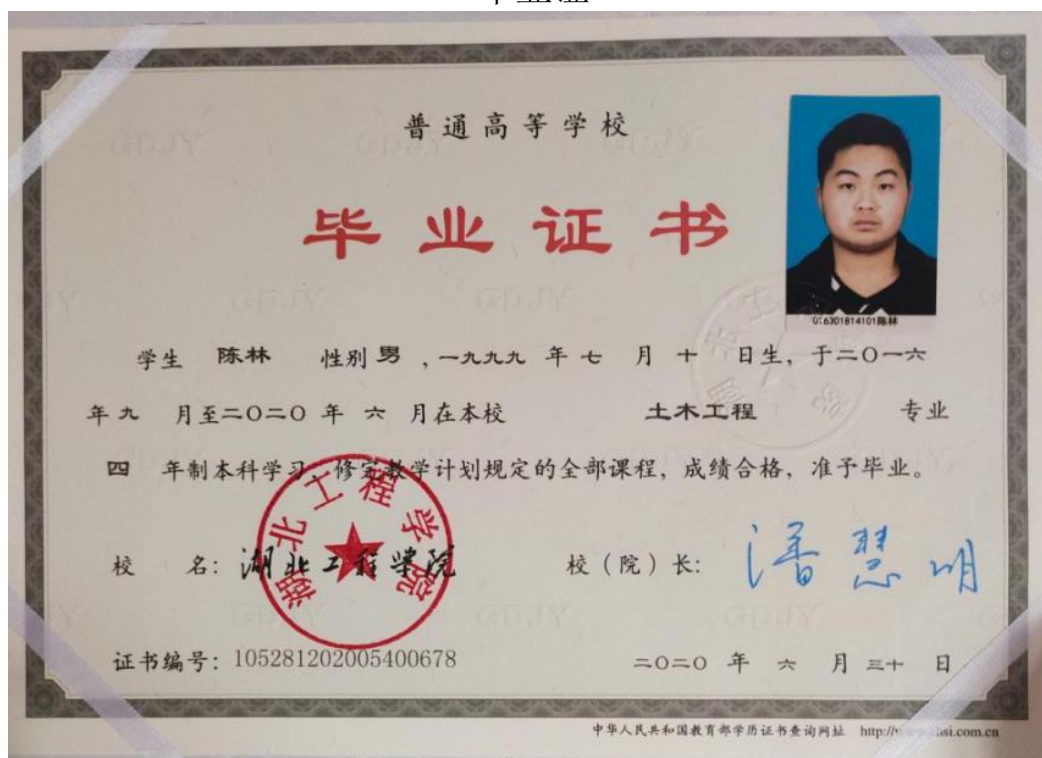 普通高等学校
毕业证书
G16301814101陈林
学生 陈林 性别 男 ,一九九九 年 七 月 十 日生, 于二〇一六
年 九 月至二〇二〇 年 六 月在本校 土木工程 专业
四 年制本科学习, 修完教学计划规定的全部课程, 成绩合格, 准予毕业。
校 名: 湖北工程学院
湖北工程学院
校(院)长: 潘慧明
证书编号: 105281202005400678
二〇二〇 年 六 月 三十 日
中华人民共和国教育部学历证书查询网址 http://www.chsi.com.cn
GDJY